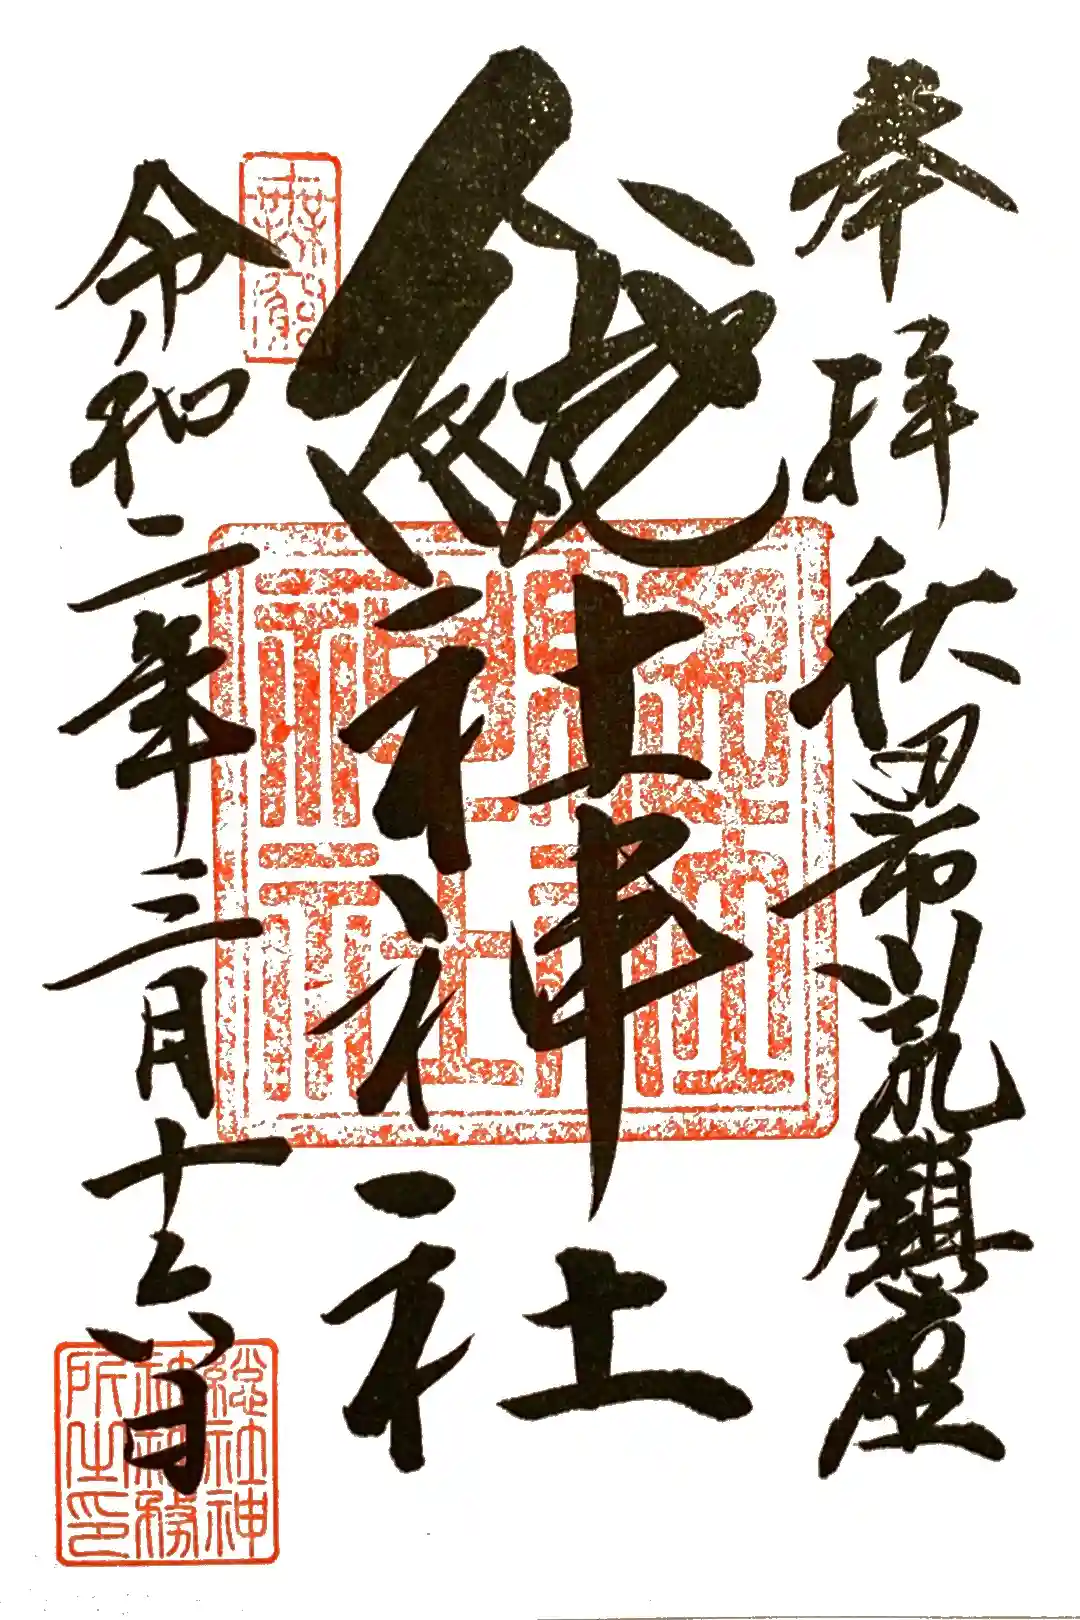 奉拝 秋田市 鎮座
総社神社
令和二年三月十六日
総社神社
総社神
社社務
所之印